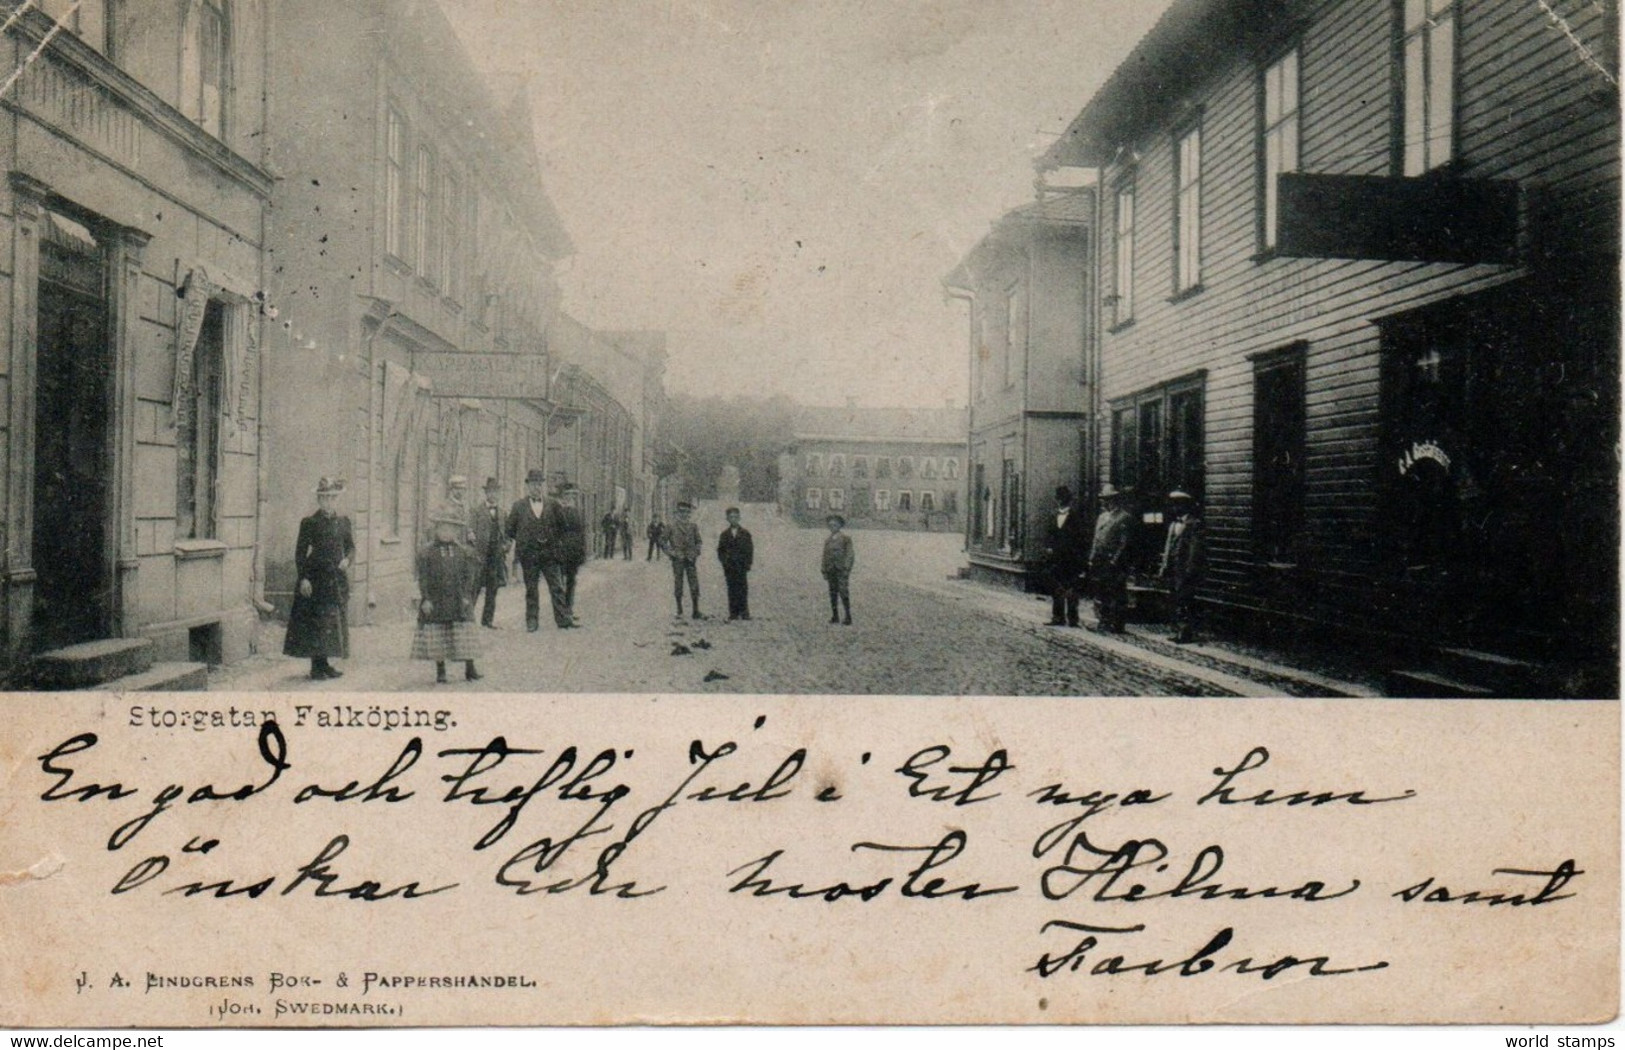 Storgatan Falköping.
En god och treflig Jul i Ert nya hem
Önskar Eder moster Hilma samt
Farbror
J. A. LINDGRENS BOK- & PAPPERSHANDEL.
(JOH. SWEDMARK.)
delcampe.net
world stamps